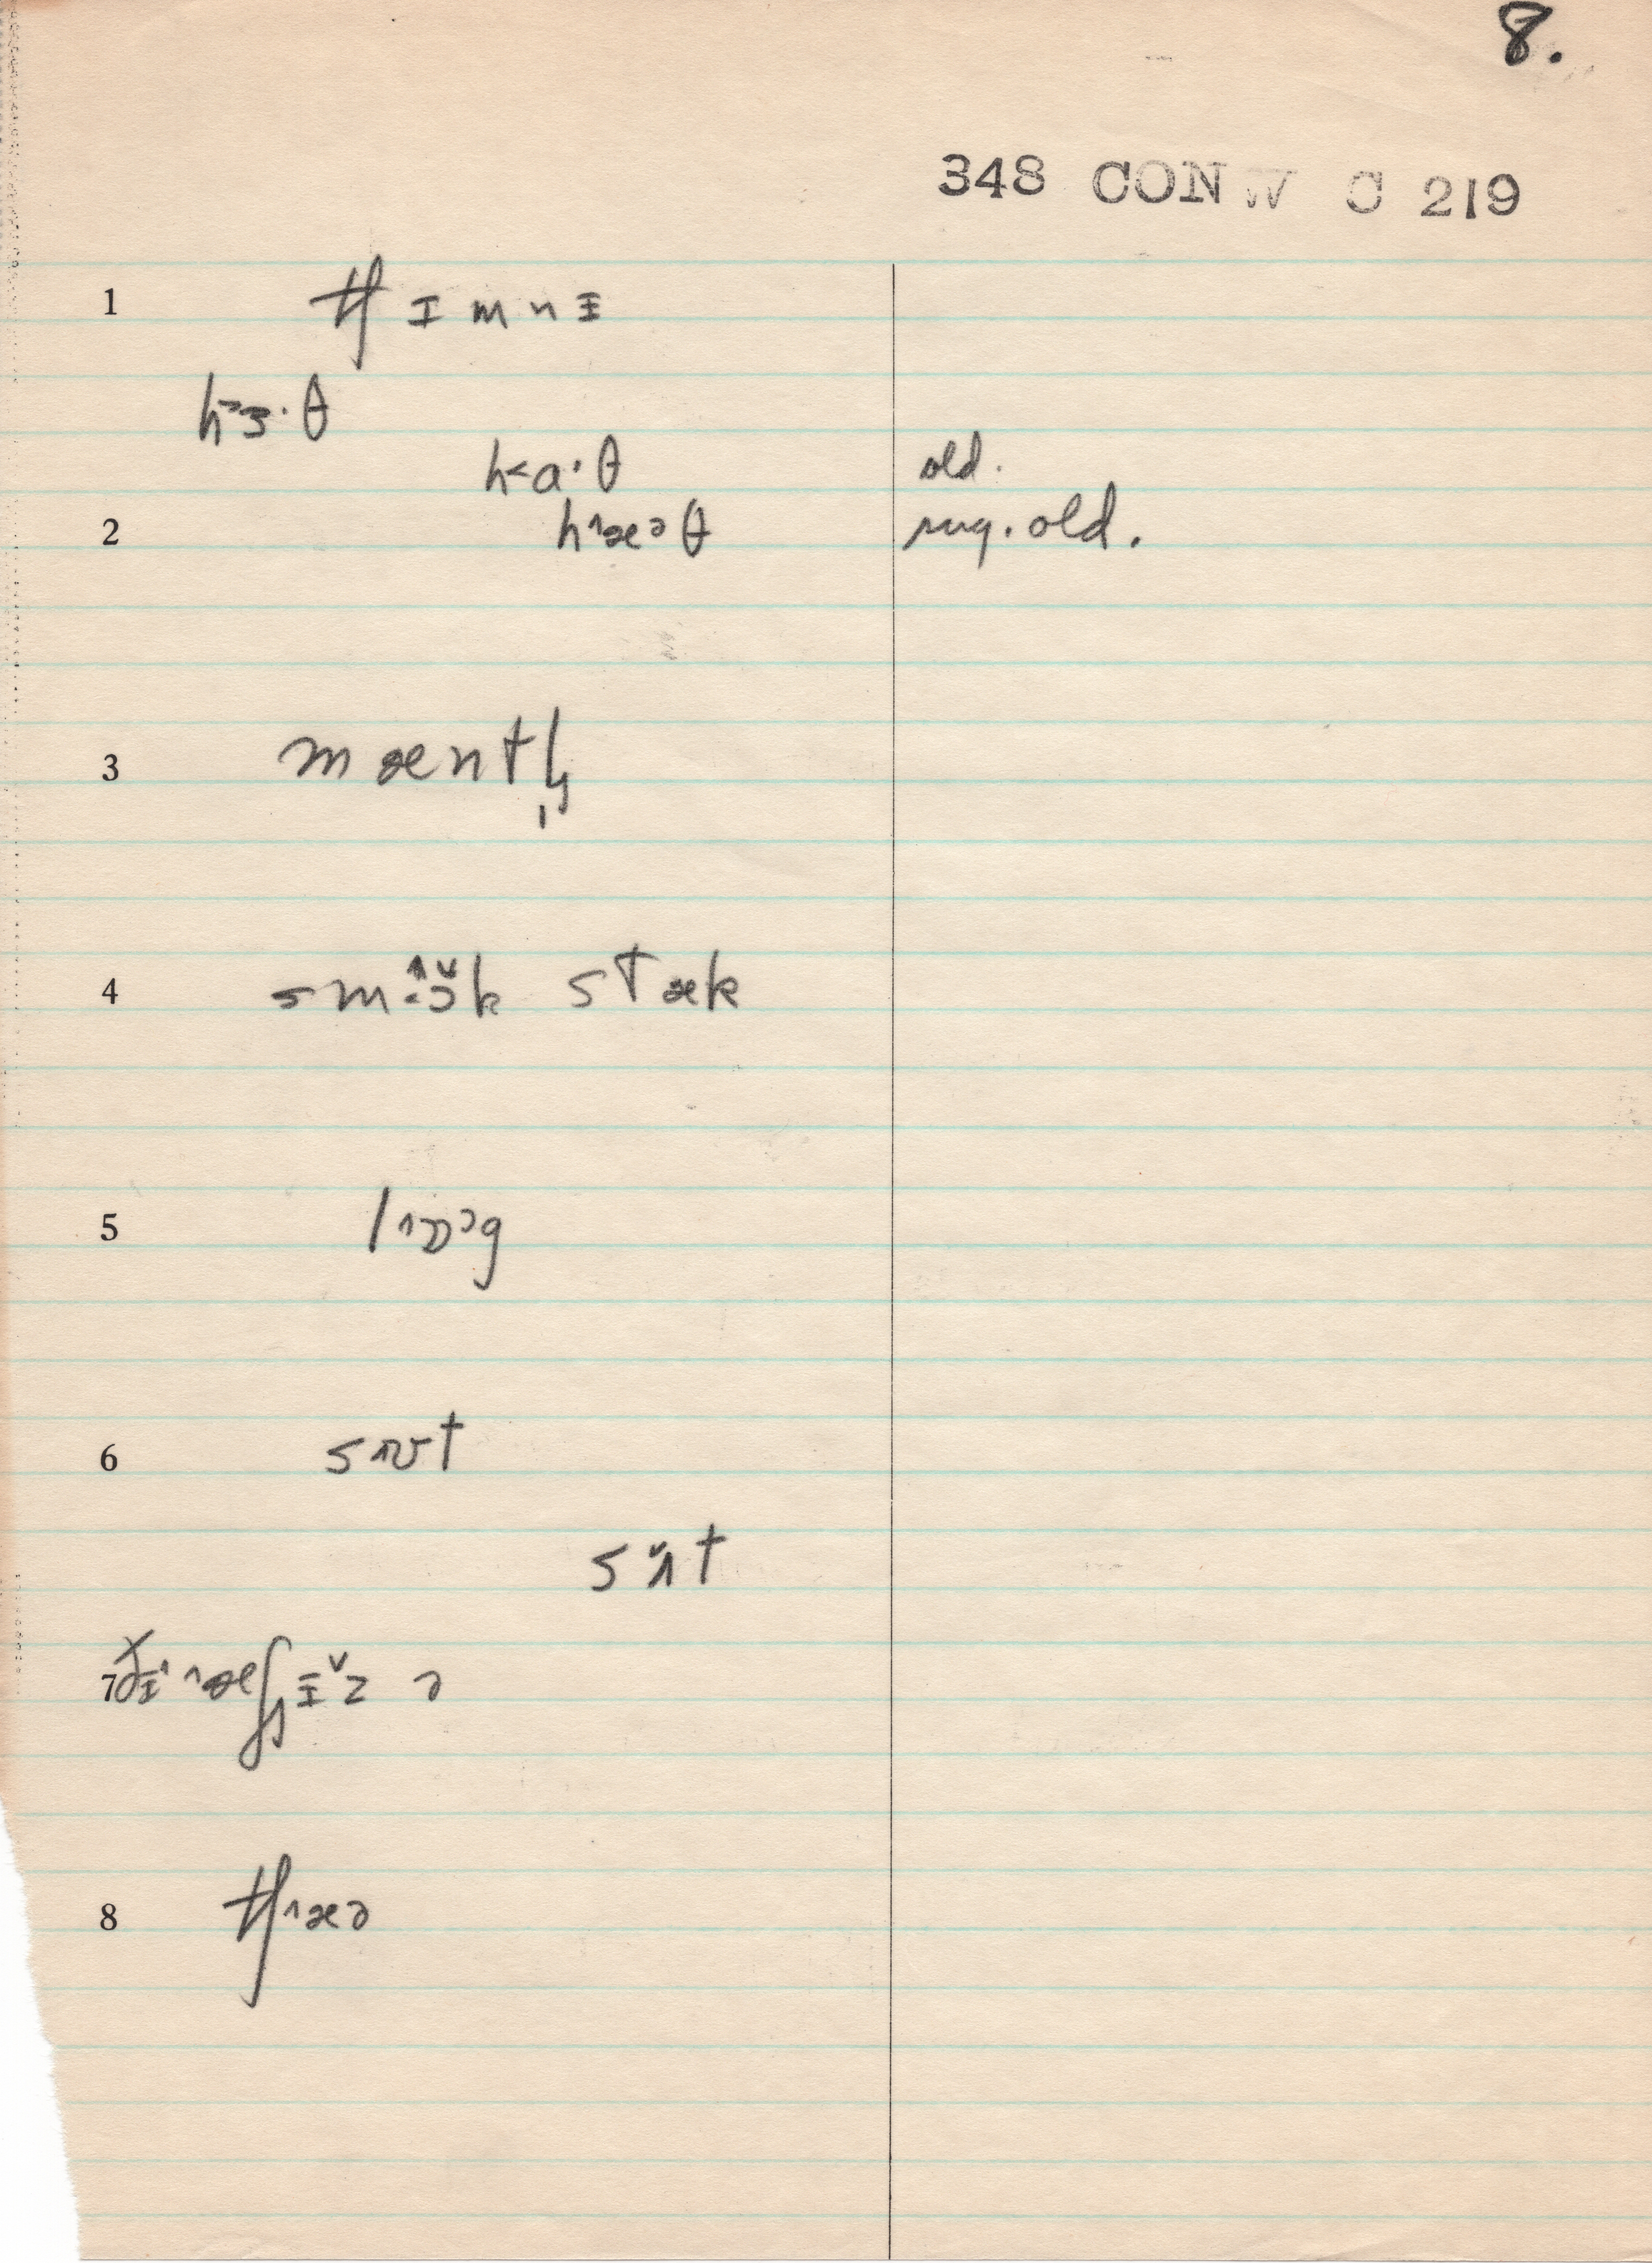 8.
348 CONW C 219
1 tʃ ɪ m n ɪ
h˃ɜ· θ
h˂ɑ· θ old.
2 h˄æə θ sug. old.
3 m æ n t l̩
4 s m ɔ k s t æ k
5 l ˄ɒɔ g
6 s ˄ʊ t
s ʌ̆ t
7 ðɪ˄ ˄æʃ ɪ̆ z ə
8 tʃ˄æə